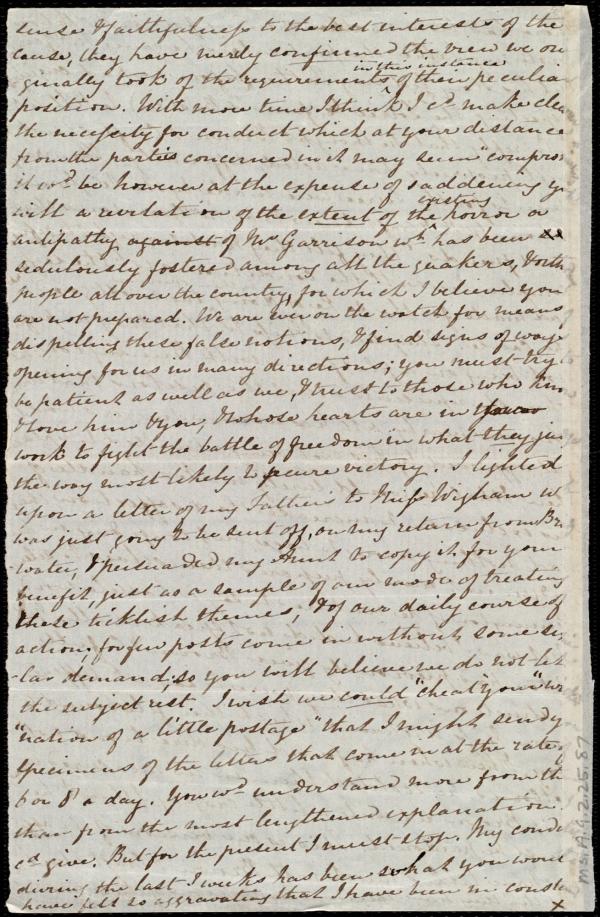 sense & faithfulness to the best interests of the
cause, they have merely confirmed the view we ori
ginally took of the requirements of their peculia
in this instance
position. With more time I think I cd. make clea
the necessity for conduct which at your distance
from the parties concerned in it may seem "compro
it wd. be however at the expense of saddening y
existing
with a revelation of the extent of the horror or
antipathy against of Mr Garrison wh. has been
sedulously fostered among all the quakers, & orth
people all over the country, for which I believe you
are not prepared. We are ever on the watch for means
dispelling these false notions, & find signs of way
opening for us in many directions; you must try
be patient as well as we, & trust to those who kn
& love him & you, & whose hearts are in
work to fight the battle of freedom in what they ju
the way most likely to secure victory. I lighted
upon a letter of my Father's to Miss Wigham w
was just going to be sent off, on my return from Br
water, & persuaded my Aunt to copy it for your
benefit, just as a sample of our mode of treating
these ticklish themes, & of our daily course of
action; for few posts come in without some si
lar demand; so you will believe we do not let
the subject rest. I wish we could "cheat your
"nation of a little postage" that I might send y
specimens of the letters that come in at the rate
6 or 8 a day. You wd. understand more from th
than from the most lengthened explanation
cd give. But for the present I must stop. My condu
during the last 2 weeks has been what you wou
have felt so aggravating that I have been in const
x
MS. A. 9. 2. 25. 87